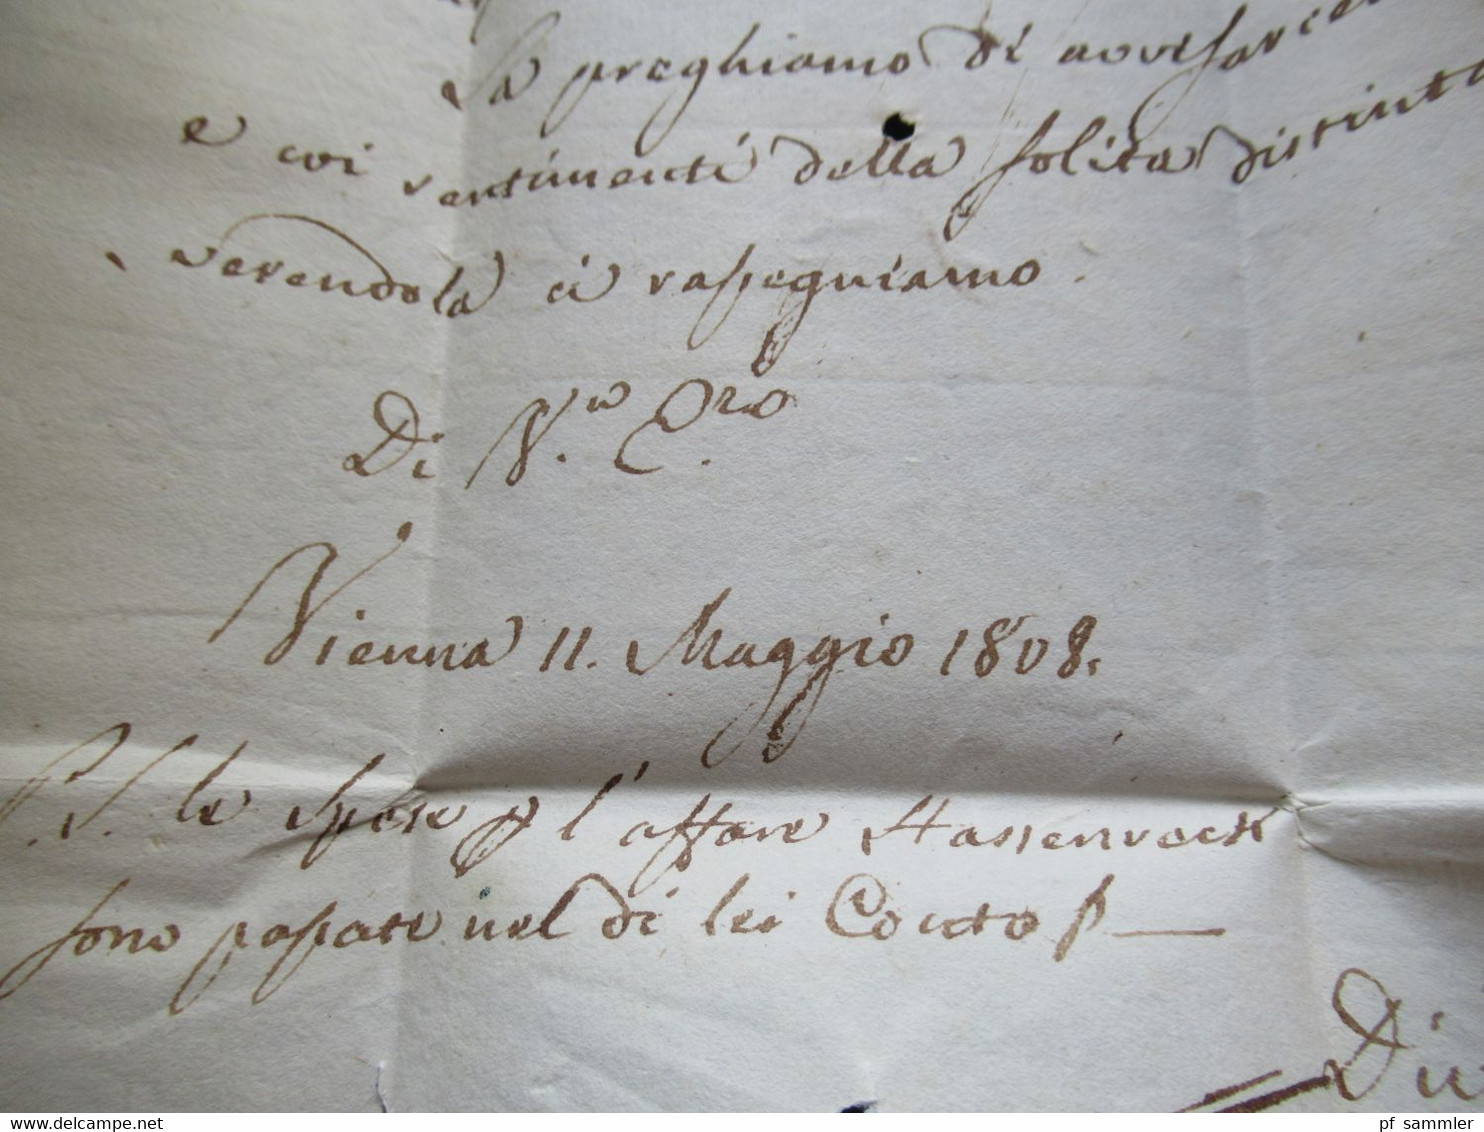 La preghiamo di avvisarce
e coi sentimenti della solita distint
verendola ci rassegniamo.
Di V.
Vienna 11. Maggio 1808.
P.S. le spese p l'affare Hassenveck
sono passate nel di lei Conto
delcampe.net
pf_sammler